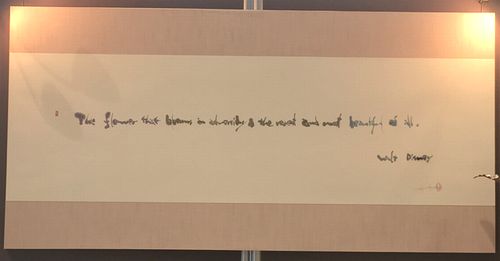 The flower that blooms in adversity is the rarest and most beautiful of all.
Walt Disney